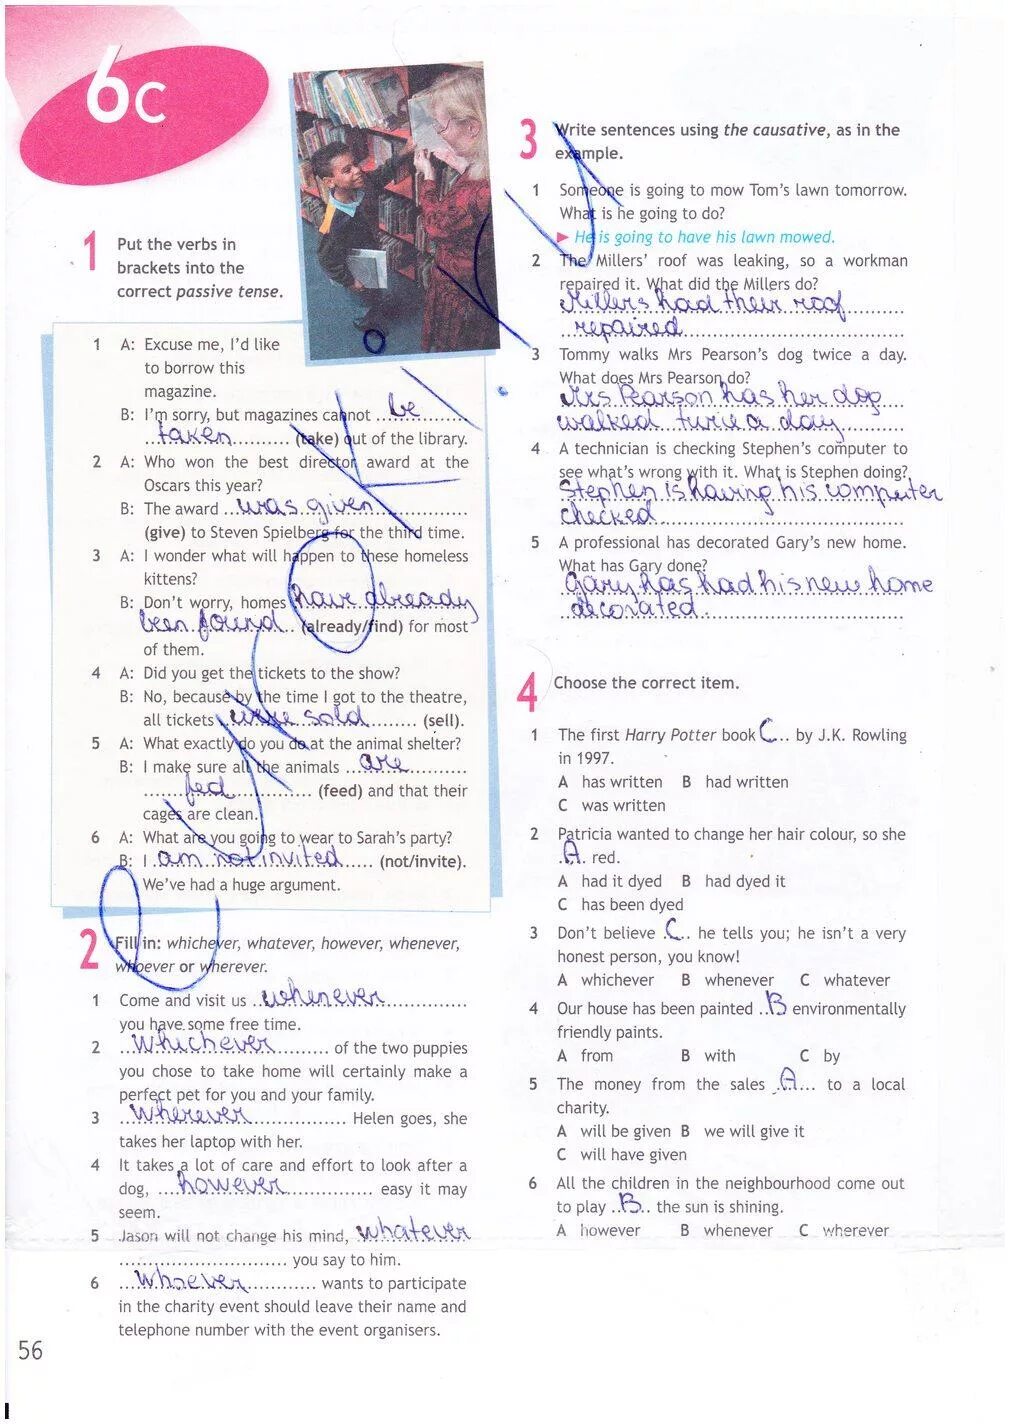 6c
1 Put the verbs in
brackets into the
correct passive tense.
1 A: Excuse me, I'd like
to borrow this
magazine.
B: I'm sorry, but magazines cannot be
taken (take) out of the library.
2 A: Who won the best director award at the
Oscars this year?
B: The award was given
(give) to Steven Spielberg for the third time.
3 A: I wonder what will happen to these homeless
kittens?
B: Don't worry, homes have already
been found (already/find) for most
of them.
4 A: Did you get the tickets to the show?
B: No, because by the time I got to the theatre,
all tickets were sold (sell).
5 A: What exactly do you do at the animal shelter?
B: I make sure all the animals are
fed (feed) and that their
cages are clean.
6 A: What are you going to wear to Sarah's party?
B: I am not invited (not/invite).
We've had a huge argument.
2 Fill in: whichever, whatever, however, whenever,
whoever or wherever.
1 Come and visit us whenever
you have some free time.
2 whichever of the two puppies
you chose to take home will certainly make a
perfect pet for you and your family.
3 wherever Helen goes, she
takes her laptop with her.
4 It takes a lot of care and effort to look after a
dog, however easy it may
seem.
5 Jason will not change his mind, whatever
you say to him.
6 whoever wants to participate
in the charity event should leave their name and
telephone number with the event organisers.
56
3 Write sentences using the causative, as in the
example.
1 Someone is going to mow Tom's lawn tomorrow.
What is he going to do?
► He is going to have his lawn mowed.
2 The Millers' roof was leaking, so a workman
repaired it. What did the Millers do?
Millers had their roof
repaired
3 Tommy walks Mrs Pearson's dog twice a day.
What does Mrs Pearson do?
Mrs Pearson has her dog
walked twice a day
4 A technician is checking Stephen's computer to
see what's wrong with it. What is Stephen doing?
Stephen is having his computer
checked
5 A professional has decorated Gary's new home.
What has Gary done?
Gary has had his new home
decorated
4 Choose the correct item.
1 The first Harry Potter book C by J.K. Rowling
in 1997.
A has written B had written
C was written
2 Patricia wanted to change her hair colour, so she
A red.
A had it dyed B had dyed it
C has been dyed
3 Don't believe C he tells you; he isn't a very
honest person, you know!
A whichever B whenever C whatever
4 Our house has been painted B environmentally
friendly paints.
A from B with C by
5 The money from the sales A to a local
charity.
A will be given B we will give it
C will have given
6 All the children in the neighbourhood come out
to play B the sun is shining.
A however B whenever C wherever